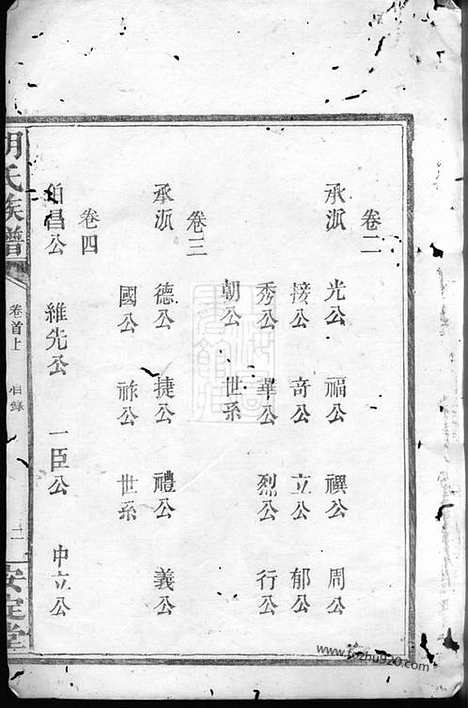 卷二
承派 光公 福公 禩公 周公
接公 奇公 立公 郁公
秀公 華公 烈公 行公
朝公 世系
卷三
承派 德公 捷公 禮公 義公
國公 祿公 世系
卷四
伯昌公 維先公 一臣公 中立公
胡氏族譜 卷首上 目錄 二 安定堂
www.fozhu920.com